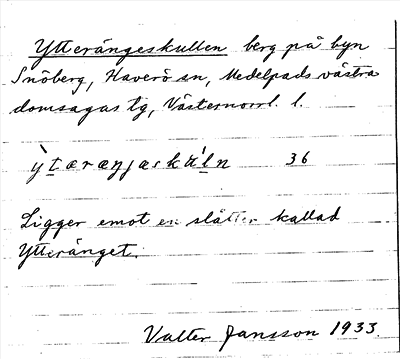 Ytterängeskullen berg på byn
Snöberg, Haverö sn, Medelpads västra
domsagas tg, Västernorrl. l.
ỳtæræŋjaskúln 36
Ligger emot en slåtter kallad
Ytteränget.
Valter Jansson 1933.